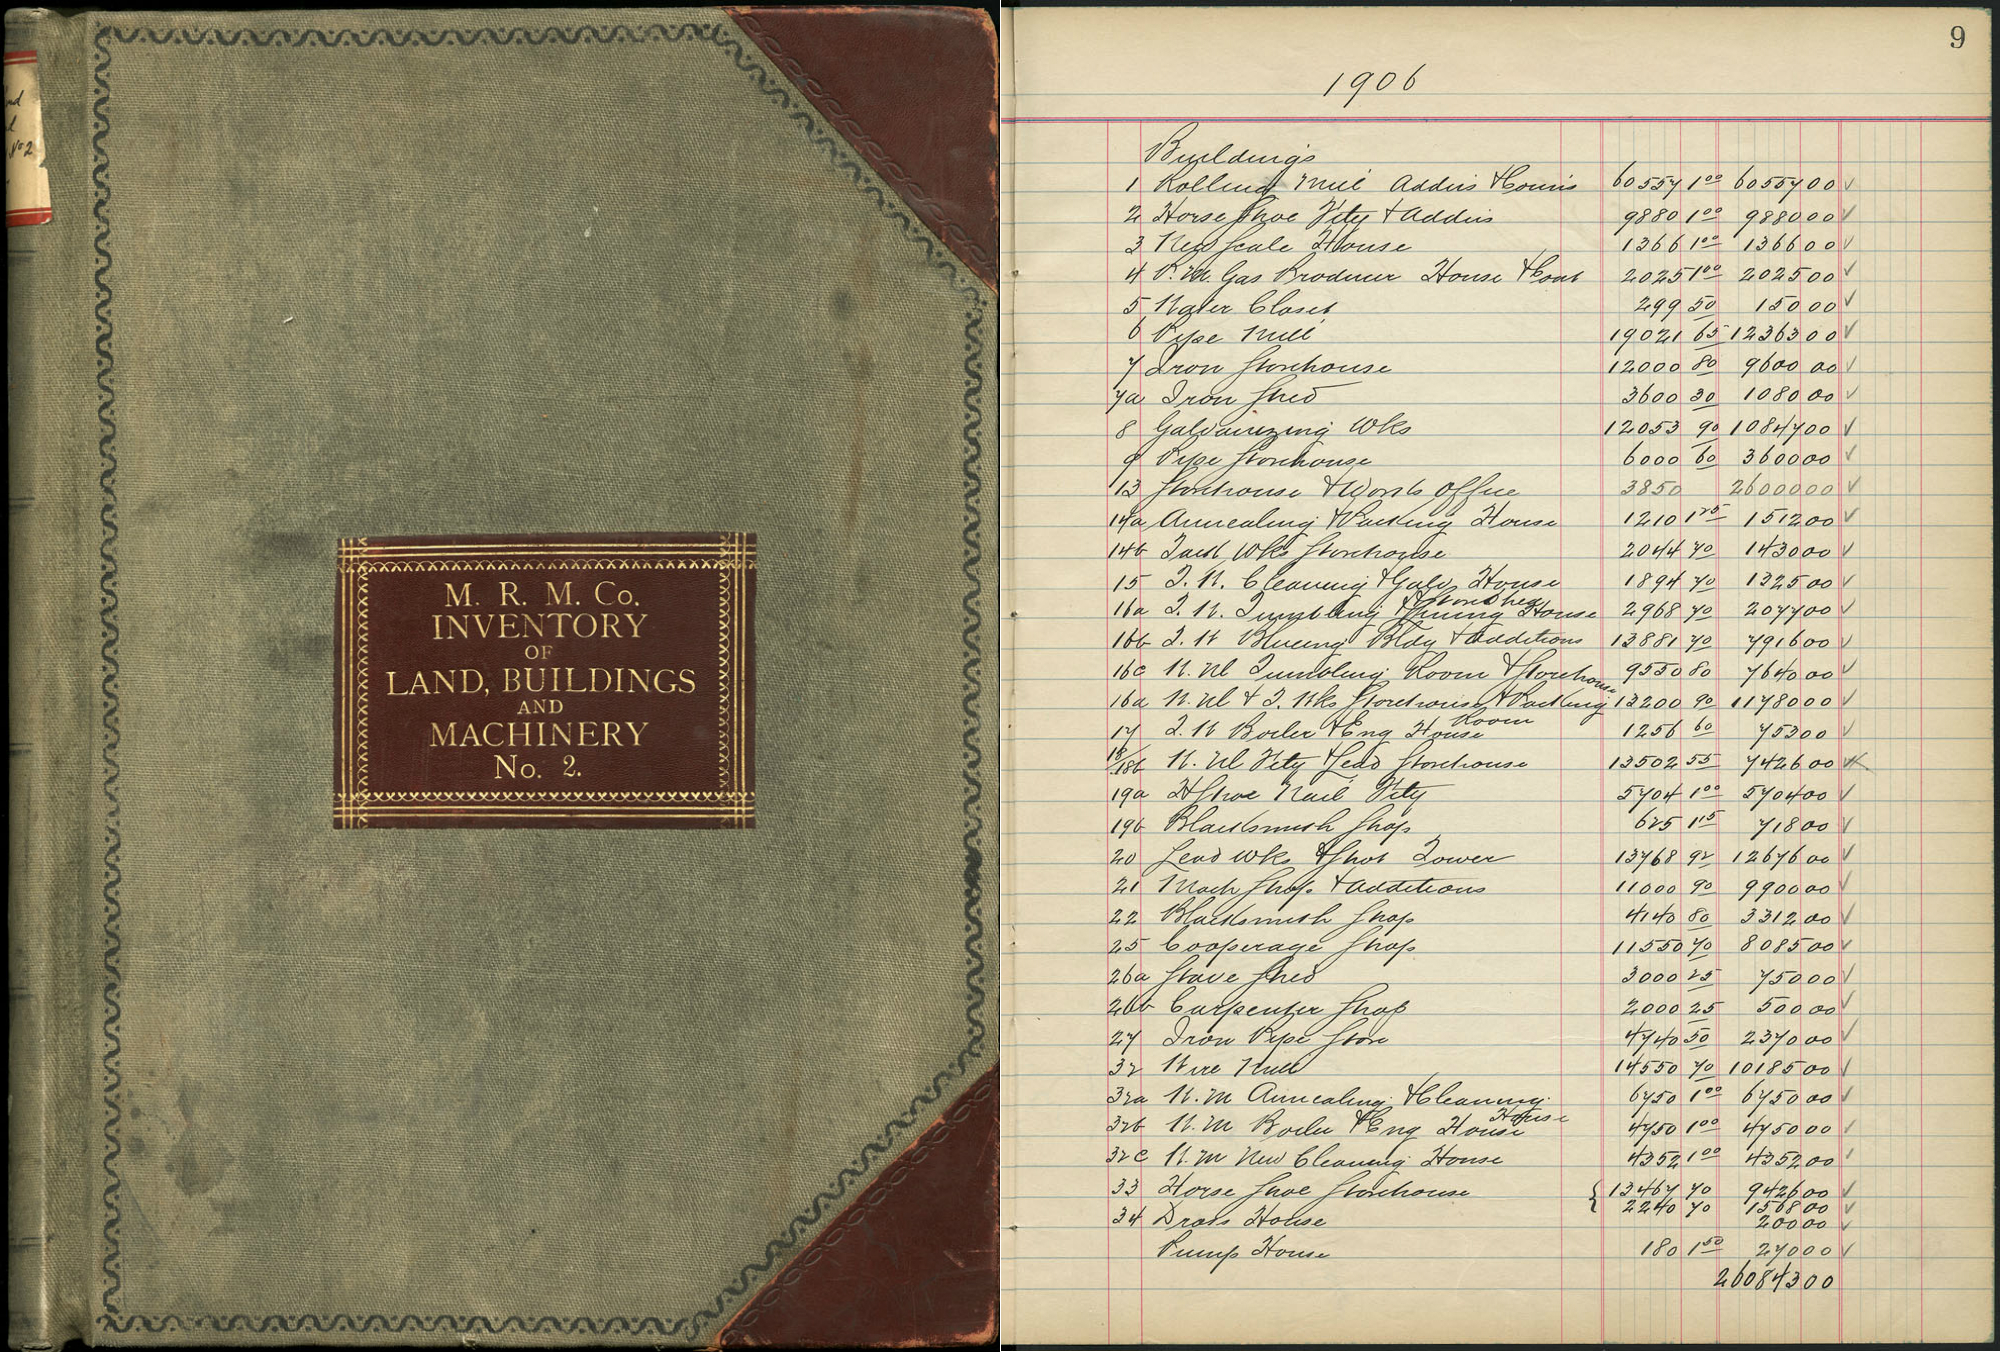 nd
l
No 2
M. R. M. Co.
INVENTORY
OF
LAND, BUILDINGS
AND
MACHINERY
No. 2.
9
1906
Buildings
1 Rolling Mill Addns & 60557 1 00 60557 00
2 Horse Shoe Fcty & Addns 9880 1 00 9880 00
3 New Scale House 1366 1 00 1366 00
4 P. M. Gas Producer House & 2025 1 00 2025 00
5 Water Closet 299 50 150 00
6 Pipe Mill 19021 65 12363 00
7 Iron Storehouse 12000 80 9600 00
7a Iron Shed 3600 30 1080 00
8 Galvanizing Wks 12053 90 10847 00
9 Pipe Storehouse 6000 60 3600 00
13 Storehouse & Works Office 3850 26000 00
14a Annealing & Packing House 1210 1 25 1512 00
14b Tack Wks Storehouse 2044 70 1430 00
15 T. W. Cleaning & Galv House 1894 70 1325 00
16a T. W. Tumbling & Tinning House 2968 70 2077 00
16b T. W Blueing Bldg & additions 13881 70 7916 00
16c W. Nl Tumbling Room & Storehouse 9550 80 7640 00
16a W. Nl & T. Wks Storehouse & Packing 13200 90 11780 00
Room
17 T. W Boiler & Eng House 1256 60 753 00
18/18b W. Nl Fcty & Lead Storehouse 13502 55 7426 00
19a H Shoe Nail Fcty 5704 1 00 5704 00
19b Blacksmith Shop 625 1 15 718 00
20 Lead Wks & Shot Tower 13768 92 12676 00
21 Mach Shop & additions 11000 90 9900 00
22 Blacksmith Shop 4140 80 3312 00
25 Cooperage Shop 11550 70 8085 00
26a Stave Shed 3000 25 750 00
26b Carpenter Shop 2000 25 500 00
27 Iron Pipe Store 4740 50 2370 00
32 Wire Mill 14550 70 10185 00
32a W. M Annealing & Cleaning House 6750 1 00 6750 00
32b W. M Boiler & Eng House 4750 1 00 4750 00
32c W. M New Cleaning House 4352 1 00 4352 00
33 Horse Shoe Storehouse 13467 70 9426 00
2240 70 1568 00
34 House 200 00
Pump House 180 1 50 270 00
260843 00